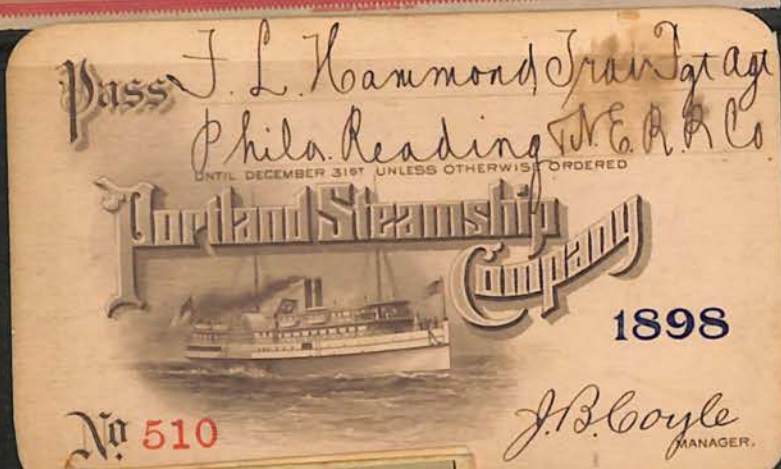 Pass F. L. Hammond Trav Fgt Agt
Phila. Reading & N. E. R. R. Co
UNTIL DECEMBER 31ST UNLESS OTHERWISE ORDERED
Portland Steamship
Company
1898
No 510
J. B. Coyle
MANAGER.